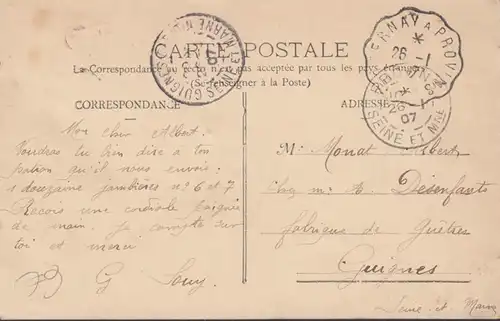 CARTE POSTALE
La Correspondance au recto n'est pas acceptée par tous les pays étrangers
(Se renseigner à la Poste)
CORRESPONDANCE
ADRESSE
Mon cher Albert.
Voudras tu bien dire a ton
patron qu'il nous envoie:
1 douzaine jambières nº 6 et 7
Reçois une cordiale poignée
de main. Je compte sur
toi et merci
G
M: Monat Albert
chez m: A. Désenfants
fabrique de Guêtres
Guignes
Seine et Marne
GUIGNES
SEINE ET MARNE
ERNAY A PROVIN
26 -1
26 -1
07
SEINE ET MNE